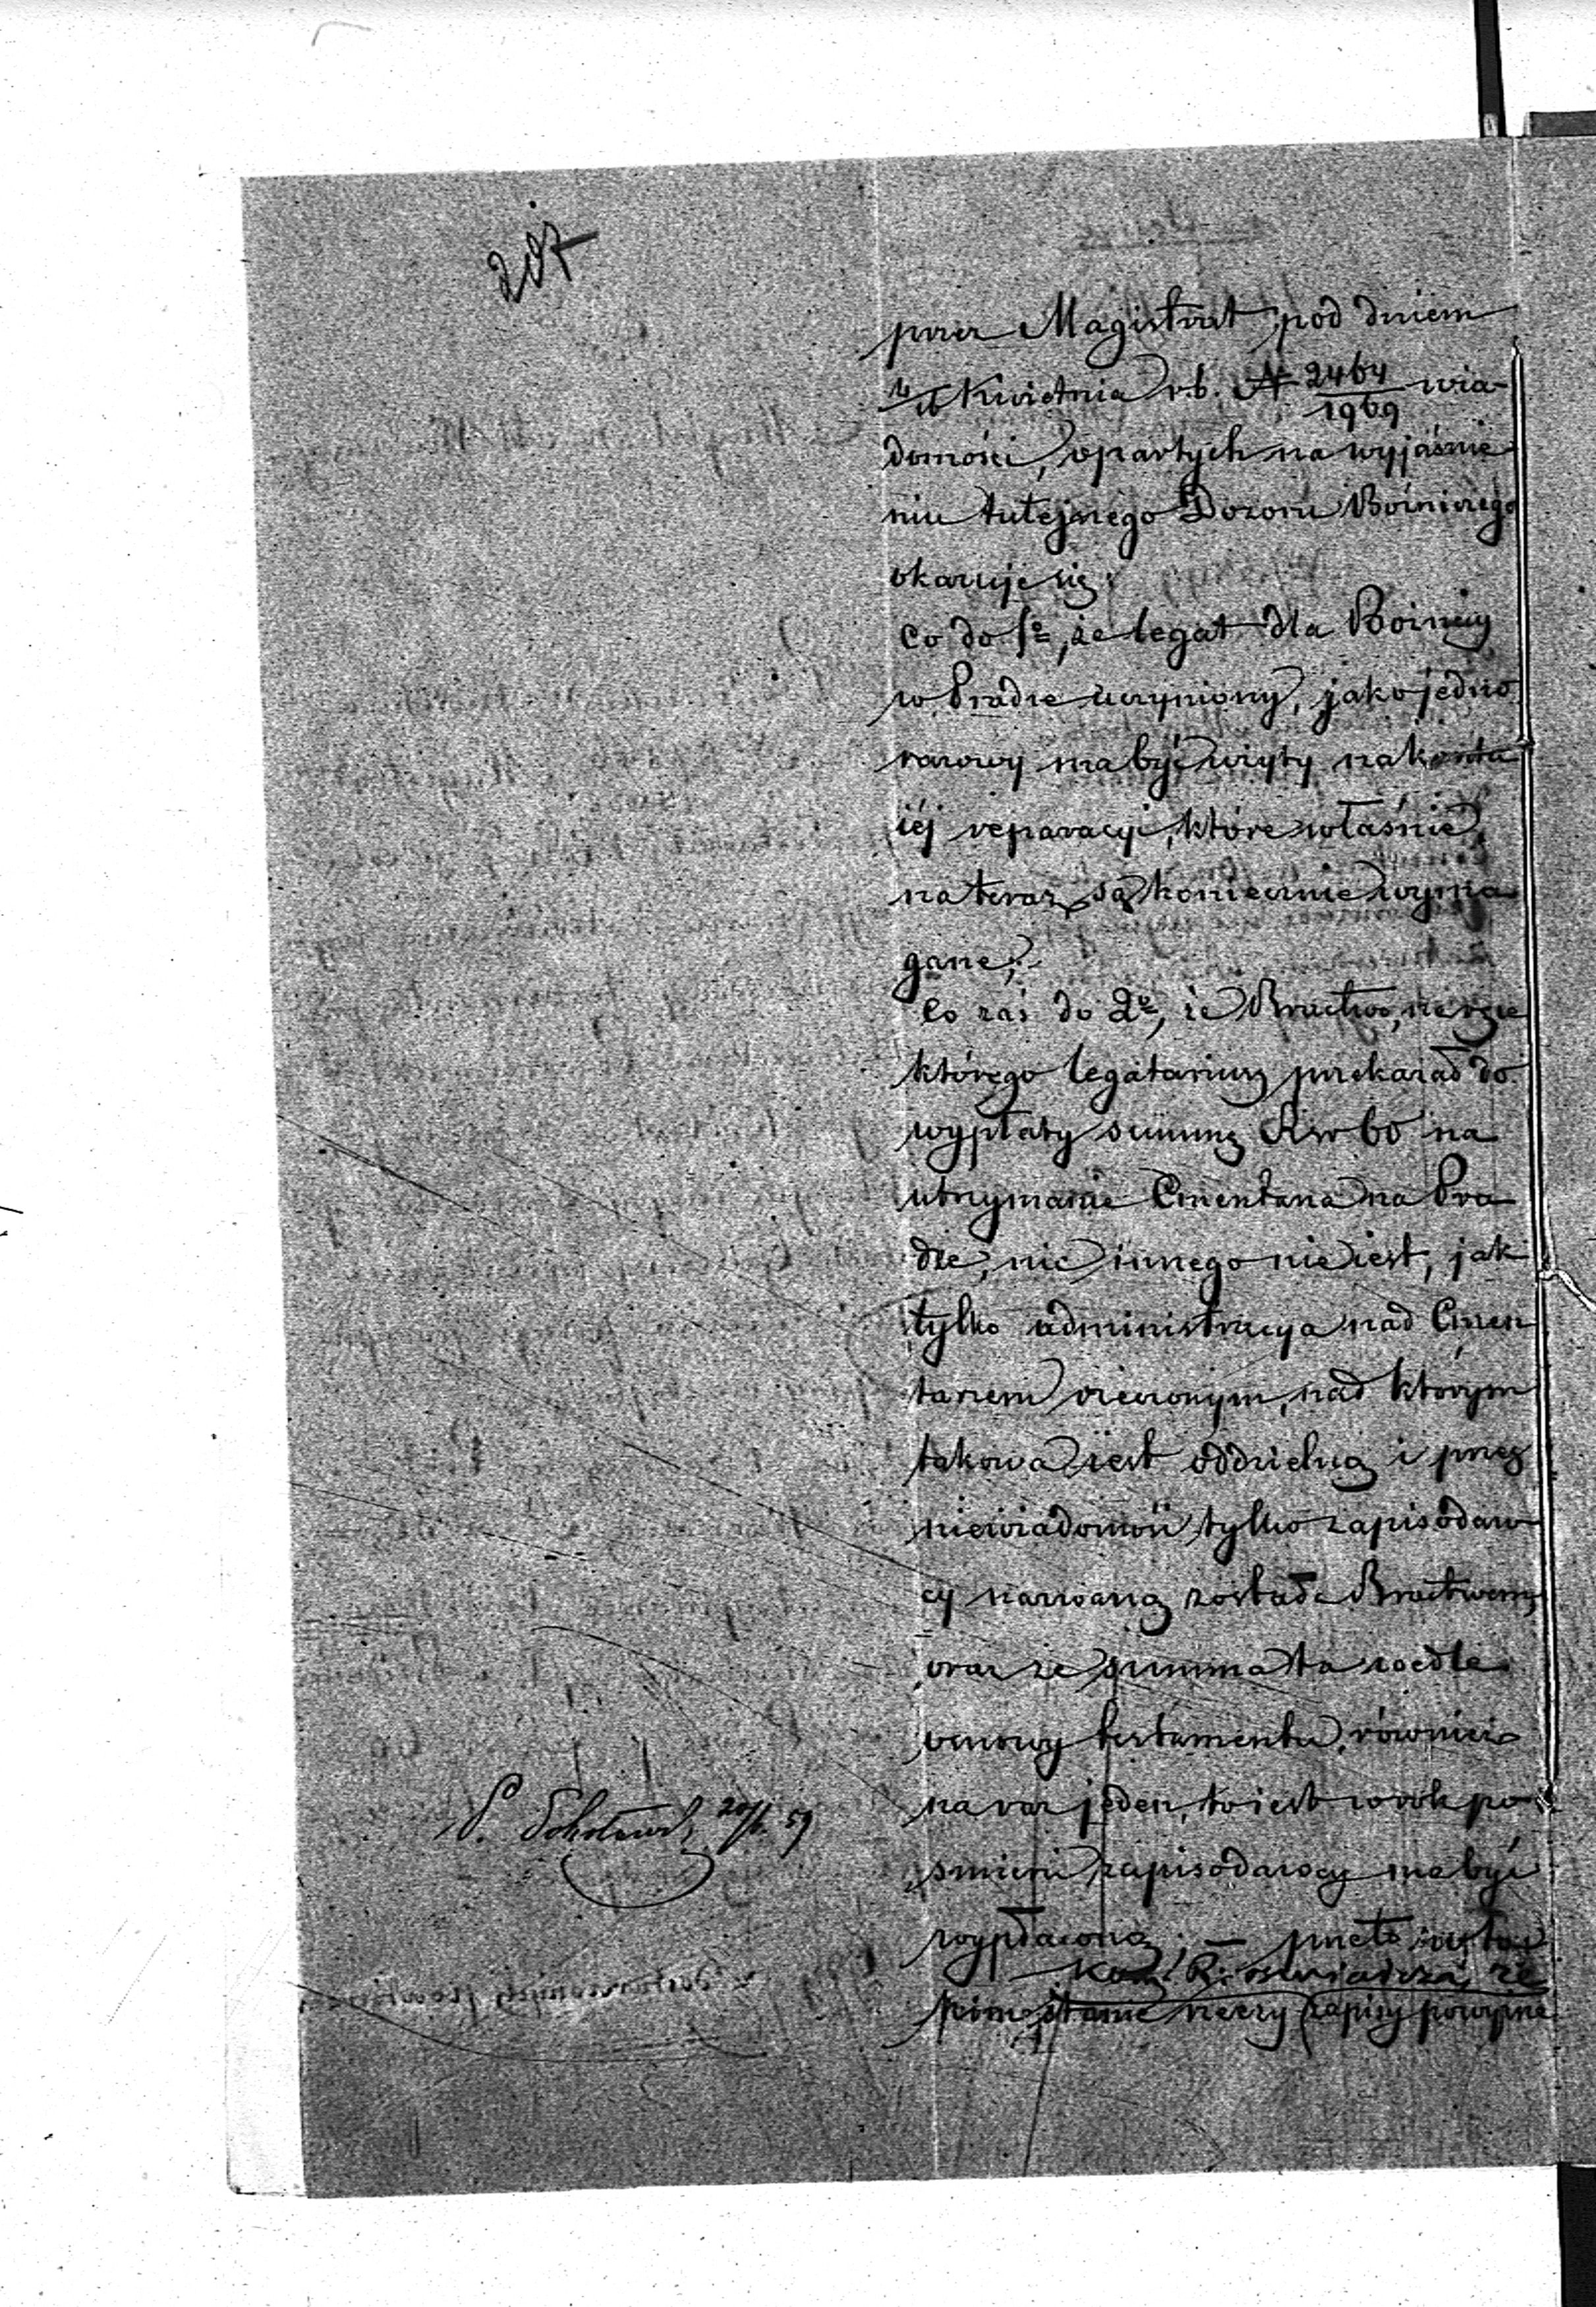 207
przez Magistrat pod dniem
4/16 Kwietnia r.b. N 2464/1969 wia-
domości, opartych na wyjaśnie
niu tutejszego Dozoru Bożniczego
okazuje się:
Co do 1º, że legat dla Bożnicy
w Pradze uczyniony, jako jedno
razowy ma być użyty na koszta
iéj reparacyi, które właśnie,
na teraz są koniecznie wyma
gane;
Co zaś do 2º, że Bractwo, na rzecz
którego legatariusz przekazał do
wypłaty summę Rsr 60 na
utrzymanie Cmentarza na Pra
dze, nic innego nie iest, jak
tylko administracya nad Cmen
tarzem rzeczonym, nad którym
takowa iest oddzielną i przez
niewiadomość tylko zapisodaw
cy nazwaną została Bractwem,
oraz że summa ta wedle
osnowy testamentu, również
na raz jeden, to iest w rok po
śmierci zapisodawcy ma być
wypłaconą; — przeto w ta
Kom. R: oświadcza, że
kim stanie rzeczy zapisy powyższe
P. Sokołowski 20/6 59